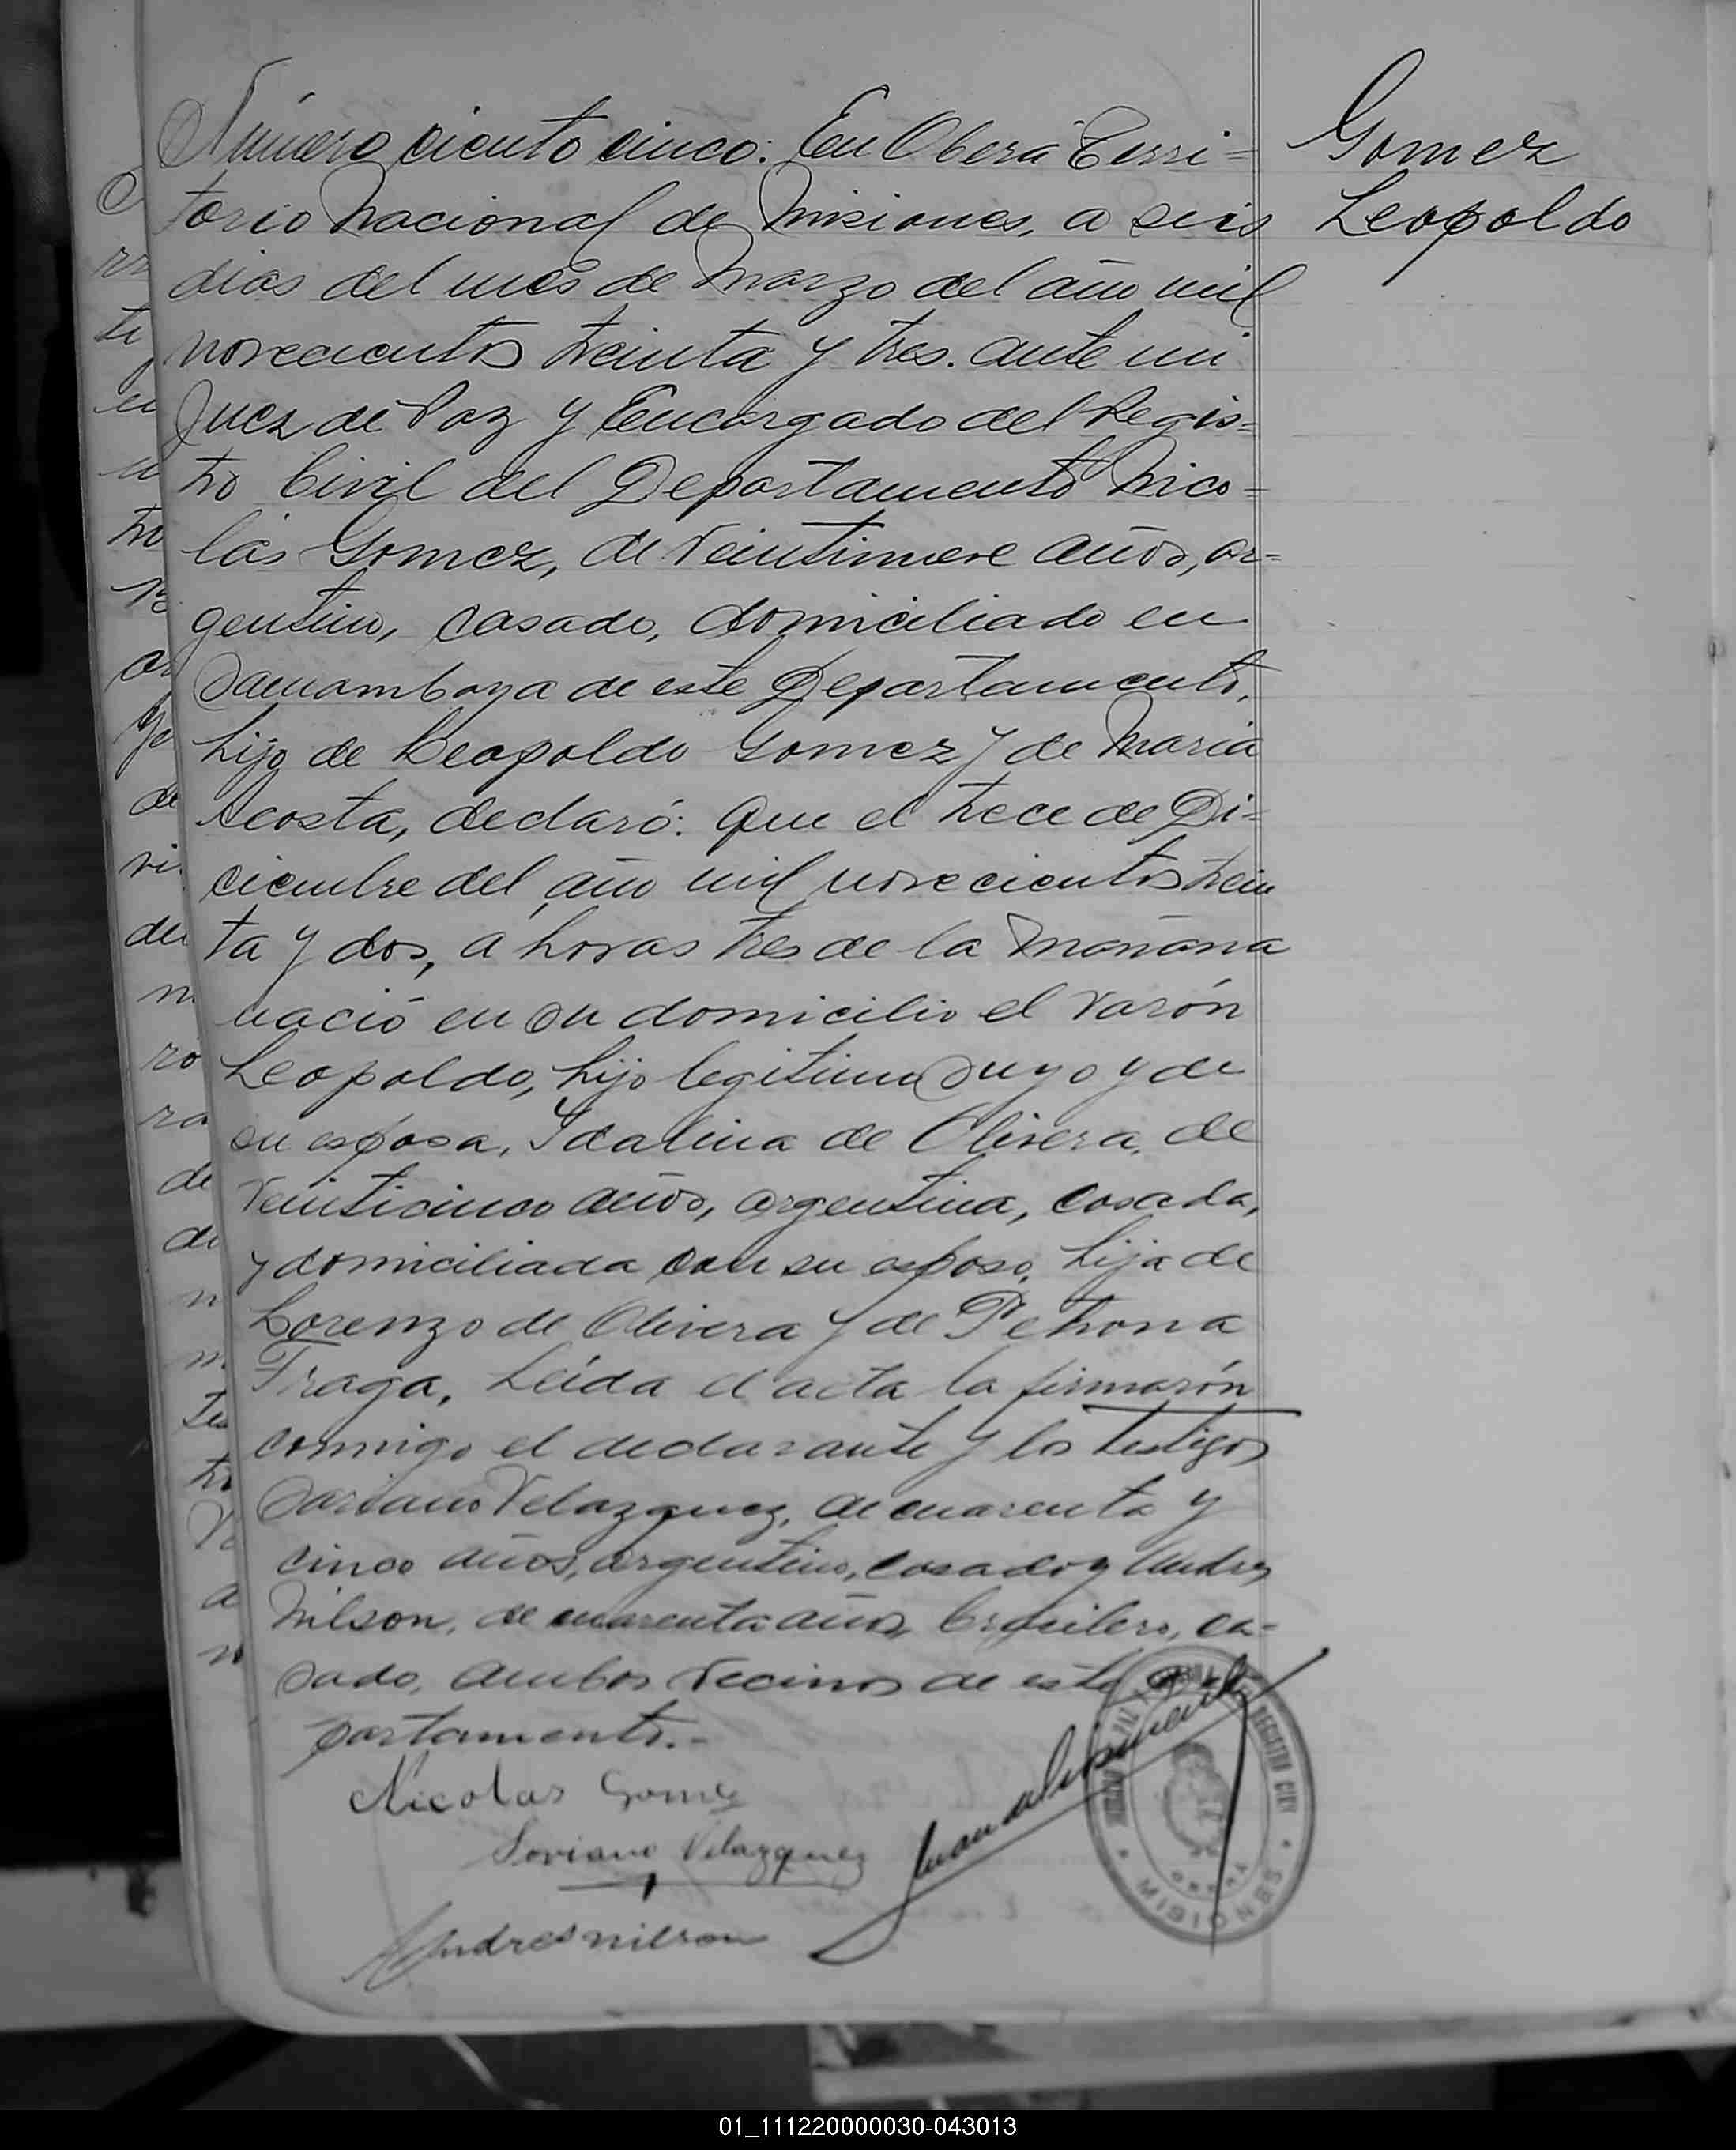 Número ciento cinco: En Oberá Terri=
torio Nacional de Misiones, a seis
dias del mes de Marzo del año mil
novecientos treinta y tres. ante mi
Juez de Paz y Encargado del Regis=
tro Civil del Departamento Nico=
lás Gomez, de veintinueve años, ar=
gentino, casado, domiciliado en
Samambaya de este Departamento,
hijo de Leopoldo Gomez y de Maria
Acosta, declaró: que el trece de Di=
ciembre del año mil novecientos trein
ta y dos, a horas tres de la mañana
nació en su domicilio el varón
Leopoldo, hijo legitimo suyo y de
su esposa, Ydalina de Olivera, de
veinticinco años, argentina, casada,
y domiciliada con su esposo, hija de
Lorenzo de Olivera y de Petrona
Fraga, Leída el acta la firmarón
conmigo el declarante y los testigos
Soriano Velazquez, de cuarenta y
cinco años, argentino, casado y Andres
Nilson, de cuarenta años, brasilero, ca=
sado, ambos vecinos de este De
partamento.-
Nicolas Gomez
Soriano Velazquez
Andres nilson
Gomez
Leopoldo
REGISTRO CIVIL
OBERA
MISIONES
01_111220000030-043013